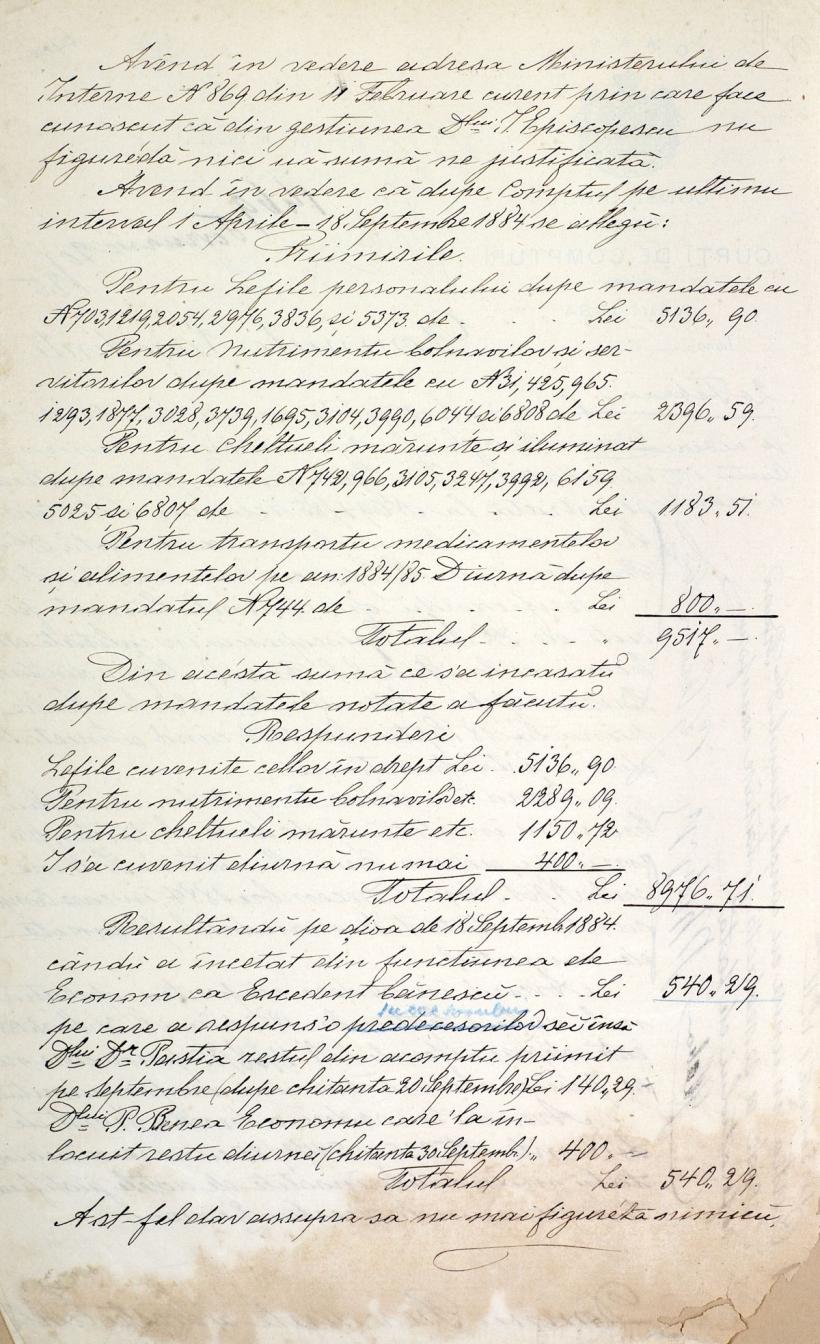 Avênd în vedere adresa Ministerului de
Interne No 869 din 11 Februare curent prin care face
cunoscut că din gestiunea Dlui I. Episcopescu nu
figuréđă nici uă sumă ne justificată.
Avend în vedere că dupe Comptul pe ultimu
interval 1 Aprile – 18 Septembre 1884 se allegŭ:
Priimirile.
Pentru Lefile personalului dupe mandatele cu
No 703, 1219, 2054, 2976, 3836, si 5373. de . . . Lei 5136,, 90
Pentru Nutrimentu bolnavilor si ser-
vitorilor dupe mandatele cu No 31, 425, 965.
1293, 1877, 3028, 3739, 1695, 3104, 3990, 6044 si 6808 de Lei 2396,, 59.
Pentru cheltueli mărunte si iluminat
dupe mandatele No 742, 966, 3105, 3247, 3992, 6159
5025 si 6807 de . . . Lei 1183,, 51.
Pentru transportu medicamentelor
si alimentelor pe an: 1884/85 Diurnă dupe
mandatul No 744. de . . . . Lei 800,, —
Totalul . . . " 9517,, —
Din acéstă sumă ce s'a incasatŭ
dupe mandatele notate a făcutŭ.
Respunderi
Lefile cuvenite cellor în drept Lei . 5136,, 90
Pentru nutrimentu bolnavilor etc. 2289,, 09.
Pentru cheltueli mărunte etc. 1150,, 72
I s'a cuvenit diurnă nu mai 400,, —
Totalul . . Lei 8976,, 71.
Resultândŭ pe đioa de 18 Septemb 1884.
cândŭ a încetat din functiunea de
Econom ca Escedent bănescŭ . . . . Lei 540,, 29.
succesorilor
pe care a respuns'o predecesorilor sĕi însă
Dlui Dr. Pastia restul din acomptu priimit
pe septembre (dupe chitanta 20 Septembre) Lei 140,, 29
Dlui P. Benea Economu care 'l a în-
locuit restu diurnei (chitanta 30 Septemb.) ,, 400,, —
Totalul Lei 540,, 29.
Ast-fel dar assupra sa nu mai figuréză nimicŭ.